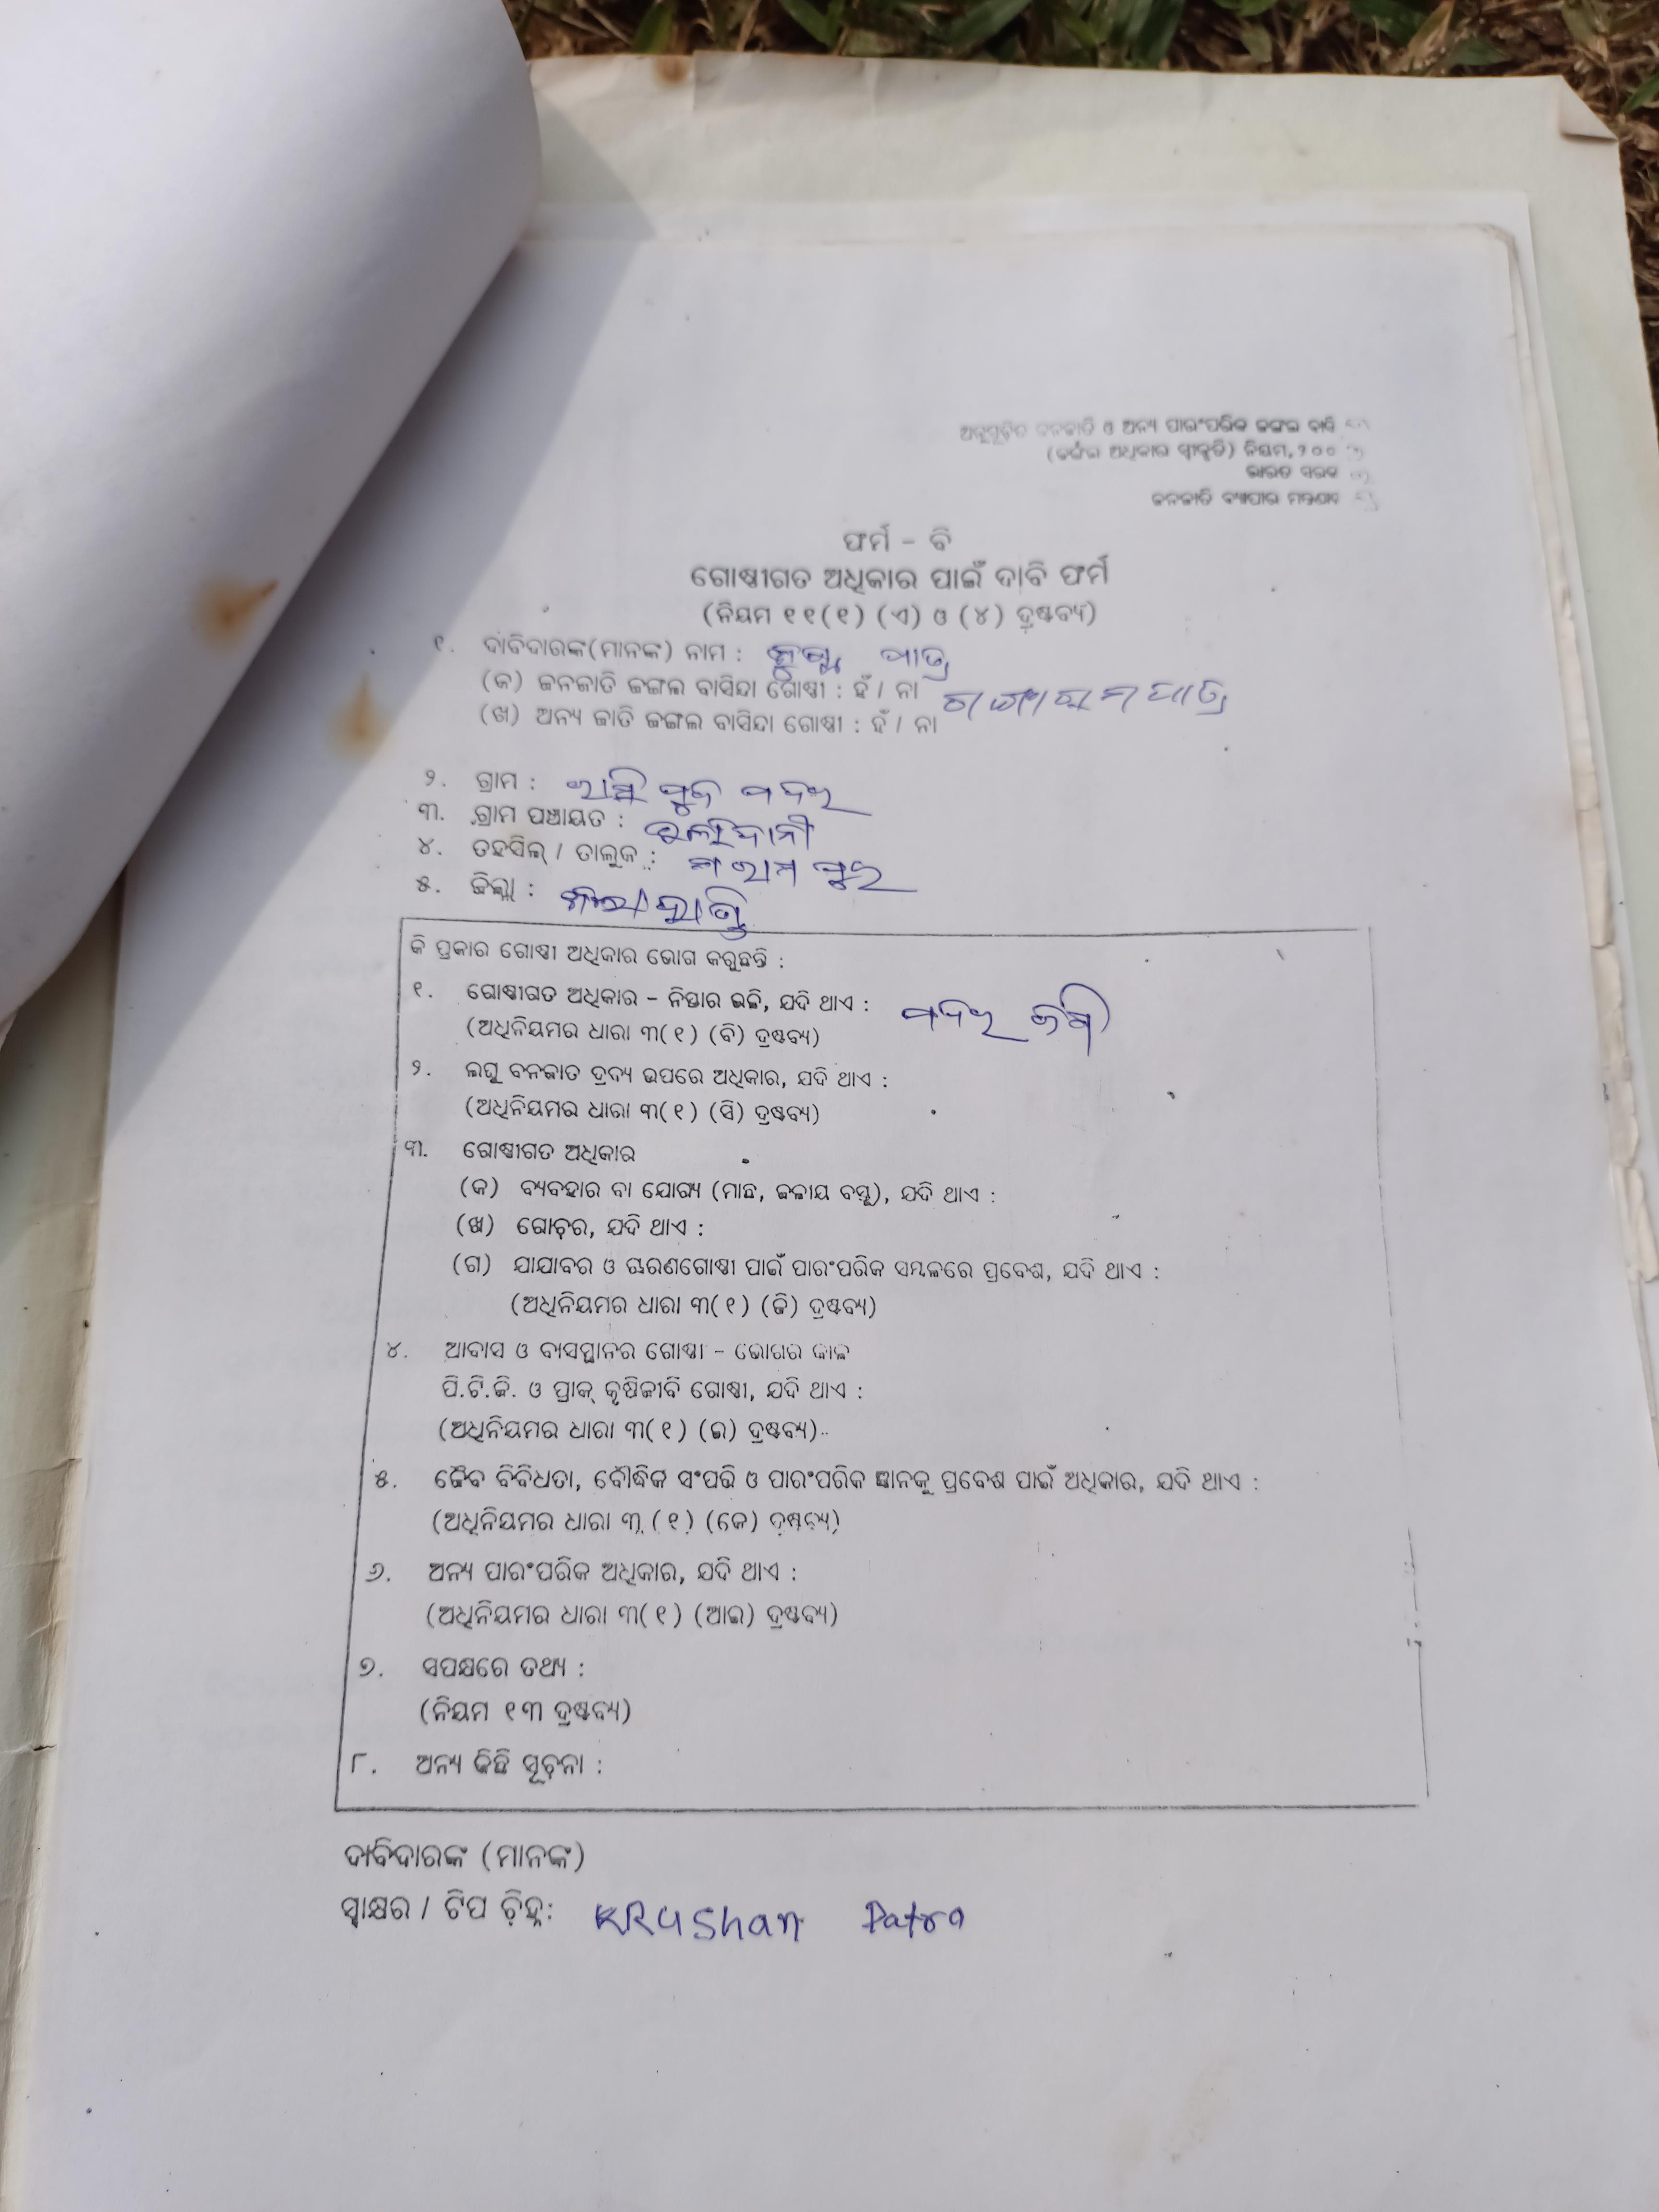 ଅନୁସୂଚିତ ଜନଜାତି ଓ ଅନ୍ୟ ପାରଂପରିକ ଜଙ୍ଗଲ ବାସି
(ଜଙ୍ଗଲ ଅଧିକାର ସ୍ୱୀକୃତି) ନିୟମ, ୨୦୦
ଭାରତ ସରକ
ଜନଜାତି ବ୍ୟାପାର ମନ୍ତ୍ରଣାଳ
ଫର୍ମ - ବି
ଗୋଷ୍ଠୀଗତ ଅଧିକାର ପାଇଁ ଦାବି ଫର୍ମ
(ନିୟମ ୧୧(୧) (ଏ) ଓ (୪) ଦ୍ରଷ୍ଟବ୍ୟ)
୧. ଦାବିଦାରଙ୍କ(ମାନଙ୍କ) ନାମ : ପାତ୍ର
(କ) ଜନଜାତି ଜଙ୍ଗଲ ବାସିନ୍ଦା ଗୋଷ୍ଠୀ : ହଁ / ନା ପାତ୍ର
(ଖ) ଅନ୍ୟ ଜାତି ଜଙ୍ଗଲ ବାସିନ୍ଦା ଗୋଷ୍ଠୀ : ହଁ / ନା
୨. ଗ୍ରାମ : ପଦର
୩. ଗ୍ରାମ ପଞ୍ଚାୟତ :
୪. ତହସିଲ୍ / ତାଲୁକ :
୫. ଜିଲ୍ଲା :
କି ପ୍ରକାର ଗୋଷ୍ଠୀ ଅଧିକାର ଭୋଗ କରୁଛନ୍ତି :
୧. ଗୋଷ୍ଠୀଗତ ଅଧିକାର - ନିସ୍ତାର ଭଳି, ଯଦି ଥାଏ : ପଦର ଜମି
(ଅଧିନିୟମର ଧାରା ୩(୧) (ବି) ଦ୍ରଷ୍ଟବ୍ୟ)
୨. ଲଘୁ ବନଜାତ ଦ୍ରବ୍ୟ ଉପରେ ଅଧିକାର, ଯଦି ଥାଏ :
(ଅଧିନିୟମର ଧାରା ୩(୧) (ସି) ଦ୍ରଷ୍ଟବ୍ୟ)
୩. ଗୋଷ୍ଠୀଗତ ଅଧିକାର
(କ) ବ୍ୟବହାର ବା ଯୋଗ୍ୟ (ମାଛ, ଜଳୀୟ ବସ୍ତୁ), ଯଦି ଥାଏ :
(ଖ) ଗୋଚ଼ର, ଯଦି ଥାଏ :
(ଗ) ଯାଯାବର ଓ ଭ୍ରରଣଗୋଷ୍ଠୀ ପାଇଁ ପାରଂପରିକ ସମ୍ବଳରେ ପ୍ରବେଶ, ଯଦି ଥାଏ :
(ଅଧିନିୟମର ଧାରା ୩(୧) (ଜି) ଦ୍ରଷ୍ଟବ୍ୟ)
୪. ଆବାସ ଓ ବାସସ୍ଥାନର ଗୋଷ୍ଠୀ - ଭୋଗର କାଳ
ପି.ଟି.ଜି. ଓ ପ୍ରାକ୍ କୃଷିଜୀବି ଗୋଷ୍ଠୀ, ଯଦି ଥାଏ :
(ଅଧିନିୟମର ଧାରା ୩(୧) (ଇ) ଦ୍ରଷ୍ଟବ୍ୟ)
୫. ଜୈବ ବିବିଧତା, ବୌଦ୍ଧିକ ସଂପତ୍ତି ଓ ପାରଂପରିକ ଜ୍ଞାନକୁ ପ୍ରବେଶ ପାଇଁ ଅଧିକାର, ଯଦି ଥାଏ :
(ଅଧିନିୟମର ଧାରା ୩ (୧) (କେ) ଦ୍ରଷ୍ଟବ୍ୟ)
୬. ଅନ୍ୟ ପାରଂପରିକ ଅଧିକାର, ଯଦି ଥାଏ :
(ଅଧିନିୟମର ଧାରା ୩(୧) (ଆଇ) ଦ୍ରଷ୍ଟବ୍ୟ)
୭. ସପକ୍ଷରେ ତଥ୍ୟ :
(ନିୟମ ୧୩ ଦ୍ରଷ୍ଟବ୍ୟ)
୮. ଅନ୍ୟ କିଛି ସୂଚ଼ନା :
ଦାବିଦାରଙ୍କ (ମାନଙ୍କ)
ସ୍ୱାକ୍ଷର / ଟିପ ଚ଼ିହ୍ନ: KRUShan Patra